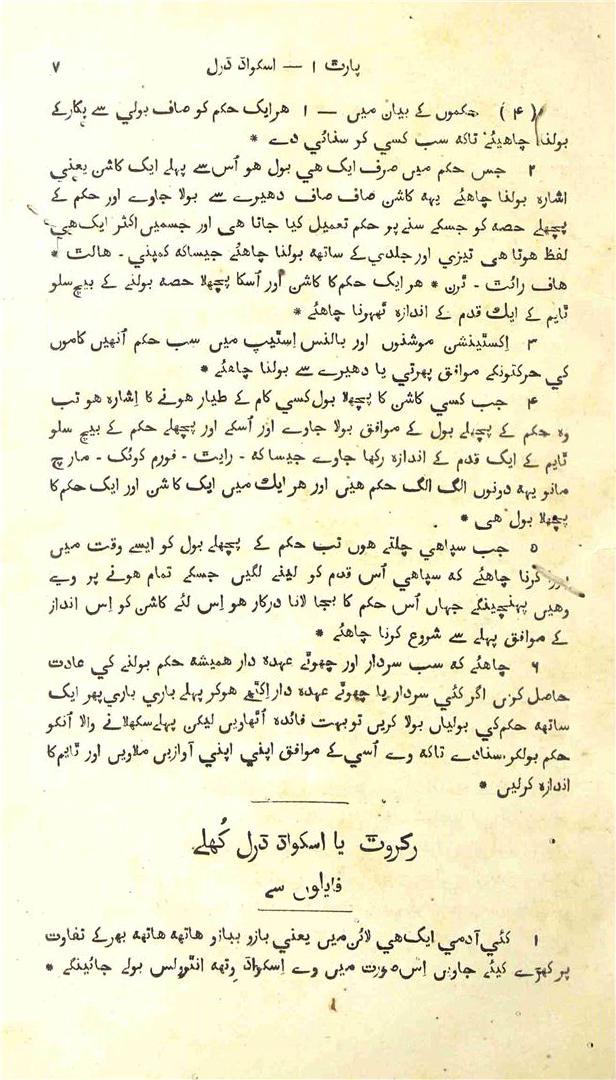 پارٹ ۱ — اسکواڈ ڈرل ۷
(۴) حکموں کے بیان میں — ۱ هرایک حکم کو صاف بولي سے پکارکے
بولنا چاهیئے تاکه سب کسي کو سنائي دے *
۲ جس حکم میں صرف ایک هي بول هو اُس سے پہلے ایک کاشن یعني
اشاره بولنا چاهئے یهه کاشن صاف صاف دهیرے سے بولا جاوے اور حکم کے
پچھلے حصه کو جسکے سنے پر حکم تعمیل کیا جاتا هی اور جسمیں اکثر ایک هي
لفظ هوتا هی تیزي اور جلدي کے ساتهه بولنا چاهئے جیساکه کمپني - هالٹ *
هاف رائٹ - ٹرن * هر ایک حکم کا کاشن اور اُسکا پچھلا حصه بولنے کے بیچ سلو
ٹایم کے ایك قدم کے اندازه ٹهہرنا چاهئے *
۳ اِکسٹینشن موشنوں اور بالنس اِسٹیپ میں سب حکم اُنهیں کاموں
کي حرکتونکے موافق پهرتي یا دهیرے سے بولنا چاهئے *
۴ جب کسي کاشن کا پچھلا بول کسي کام کے طیار هونے کا اِشاره هو تب
وه حکم کے پچھلے بول کے موافق بولا جاوے اور اُسکے اور پچھلے حکم کے بیچ سلو
ٹایم کے ایک قدم کے اندازه رکها جاوے جیسا که - رایٹ - فورم کوئک - مارچ
مانو یهه دونوں الگ الگ حکم هیں اور هر ایك میں ایک کاشن اور ایک حکم کا
پچھلا بول هی *
۵ جب سپاهي چلتے هوں تب حکم کے پچھلے بول کو ایسے وقت میں
کرنا چاهئے که سپاهي اُس قدم کو لینے لگیں جسکے تمام هونے پر وے
وهیں پہنچینگے جہاں اُس حکم کا بجا لانا درکار هو اِس لئے کاشن کو اِس انداز
کے موافق پہلے سے شروع کرنا چاهئے *
۶ چاهئے که سب سردار اور چهوٹے عہده دار همیشه حکم بولنے کي عادت
حاصل کریں اگر کئي سردار یا چهوٹے عہده دار اِکٹھے هوکر پہلے باري باري پهر ایک
ساتهه حکم کي بولیاں بولا کریں تو بہت فائده اُٹهاویں لیکن پہلے سکهلانے والا اُنکو
حکم بولکر سنادے تاکه وے اُسي کے موافق اپني اپني آوازیں ملاویں اور ٹایم کا
اندازه کرلیں *
رکروٹ یا اسکواڈ ڈرل کُهلے
فایلوں سے
۱ کئي آدمي ایک هي لائن میں یعني بازو ببازو هاتهه هاتهه بهر کے تفاوت
پر کهڑے کیئے جاویں اِس صورت میں وے اِسکواڈ وِتهه انٹرولس بولے جائینگے *